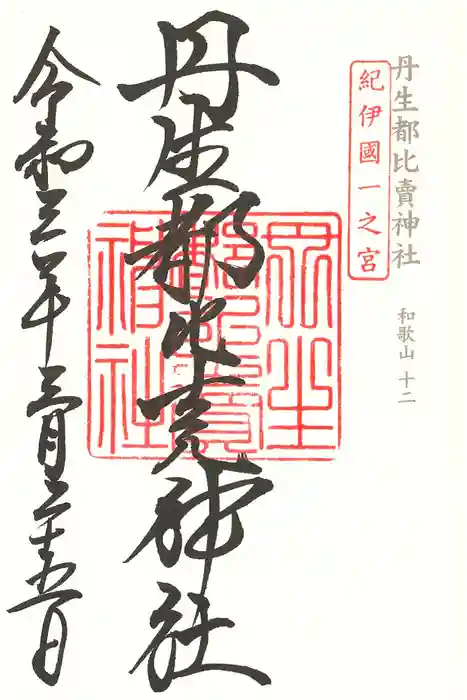 丹生都比賣神社
和歌山 十二
紀伊國一之宮
丹生都比売神社
丹生都比賣神社
令和三年三月二十五日